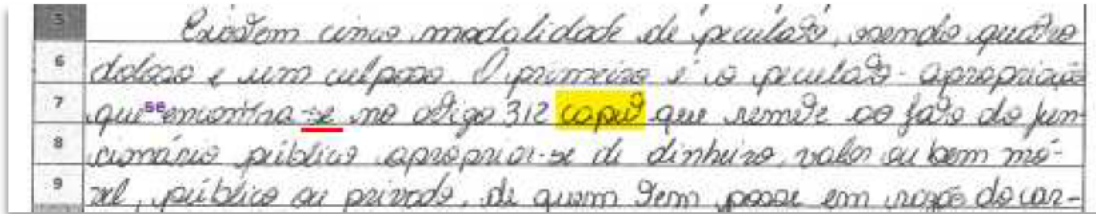 5 Existem cinco modalidade de peculato, sendo quatro
6 doloso e um culposo. O primeiro é o peculato-apropriação
7 que se encontra-se no artigo 312 caput que remete ao fato do fun-
8 cionário público apropriar-se de dinheiro, valor ou bem mó-
9 vel, público ou privado, de quem tem posse em razão do car-